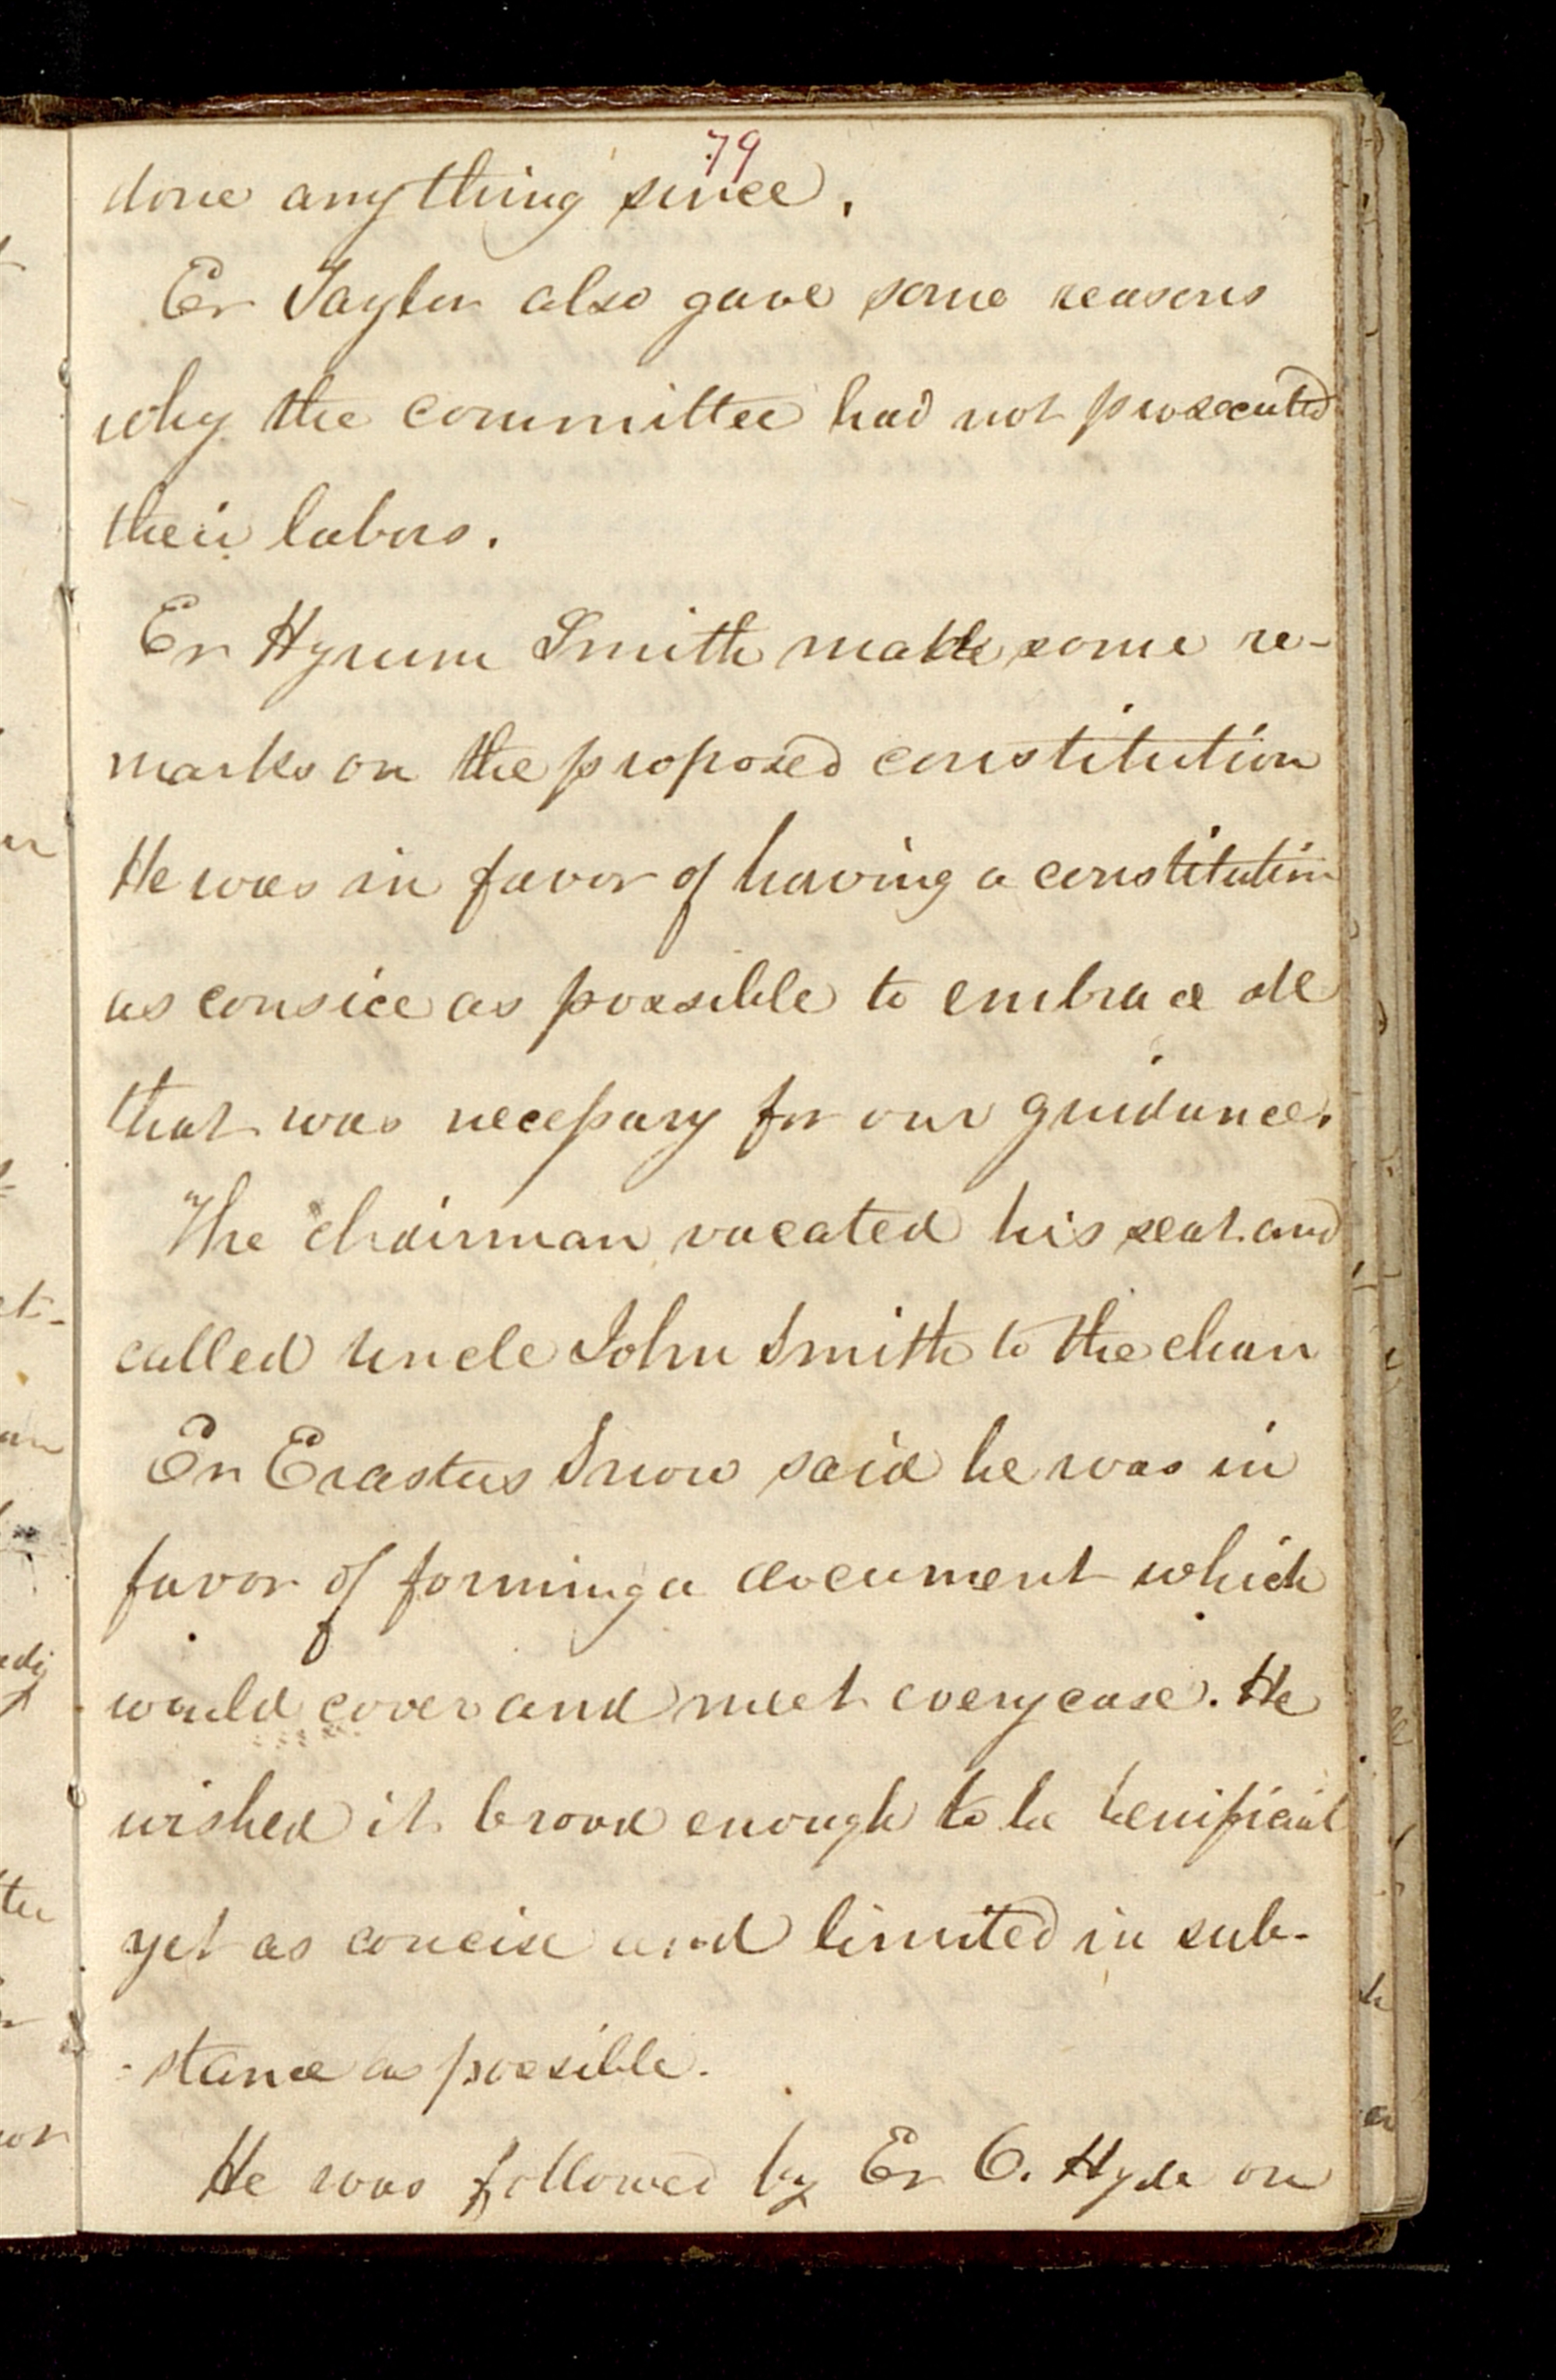 79
done anything since.
Er Taylor also gave some reasons
why the committee had not prosecuted
their labors.
Er Hyrum Smith made some re-
marks on the proposed constitution
He was in favor of having a constitution
as consice as possible to embrace all
that was necessary for our guidance.
The chairman vacated his seat and
called uncle John Smith to the chair
Er Erastus Snow said he was in
favor of forming a document which
would cover and meet every case. He
wished it broad enough to be benificial
yet as concise and limited in sub-
-stance as possible.
He was followed by Er O. Hyde on